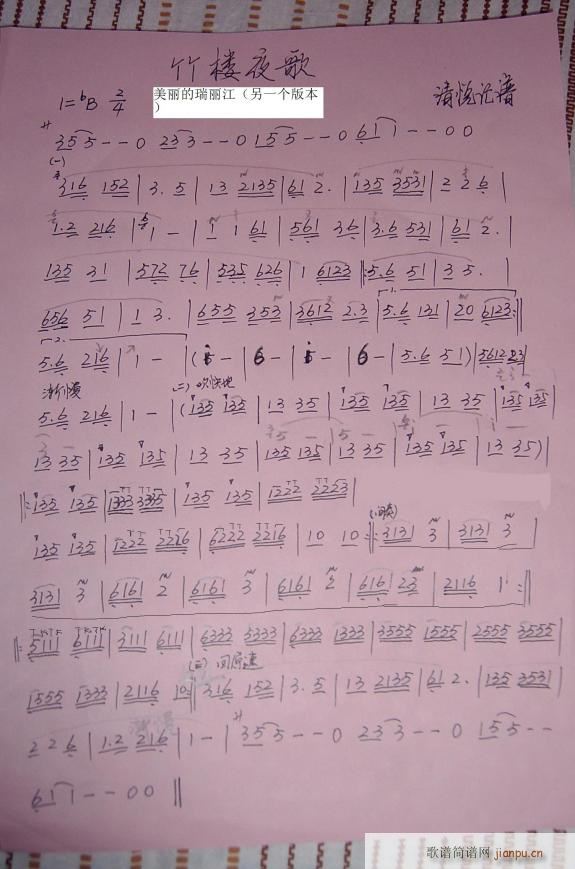 竹楼夜歌
1=ᵇB 2/4 美丽的瑞丽江（另一个版本） 清悦记谱
サ 355--0 233--0 155--0 611--00
(一)
316 152 | 3. 5 | 13 2135 | 61 2. | 135 3531 | 2 26 |
1.2 216 | 1 - | 1 1 61 | 561 36 | 3.6 531 | 61 2. |
135 31 | 572 76 | 535 626 | 1 6123 |: 5.6 51 | 3 5. |
656 51 | 1 3. | 655 353 | 3612 2.3 | 5.6 131 | 20 6123 :|
5.6 216 | 1 - | (5 - | 6 - | 5 - | 6 - | 5.6 51) | 5612 23 |
渐慢 (二)
5.6 216 | 1 - | (135 135 | 13 35 | 135 135 | 13 35 | 135 135 |
13 35 | 135 135 | 13 35 | 135 135 | 13 35 | 135 135 | 13 35) |
|: 135 135 | 1333 3335 | 135 135 | 1222 2223 |
135 135 | 1222 2216 | 6222 2216 | 10 10 :|: 3131 3 | 3131 3 |
3131 3 | 6161 2 | 6161 3 | 6161 2 | 6161 23 | 2116 1 :|
|: 5111 6111 | 3111 6111 | 6333 5333 | 6333 1333 | 3555 1555 | 2555 3555 |
(三) 回原速
1555 1333 | 2116 10 :| 316 152 | 3. 5 | 13 2135 | 61 2. | 135 3531 |
2 2 6 | 1.2 216 | 1 - | サ 355--0 233--0 155--
611--00 ‖
歌谱简谱网
jianpu.cn